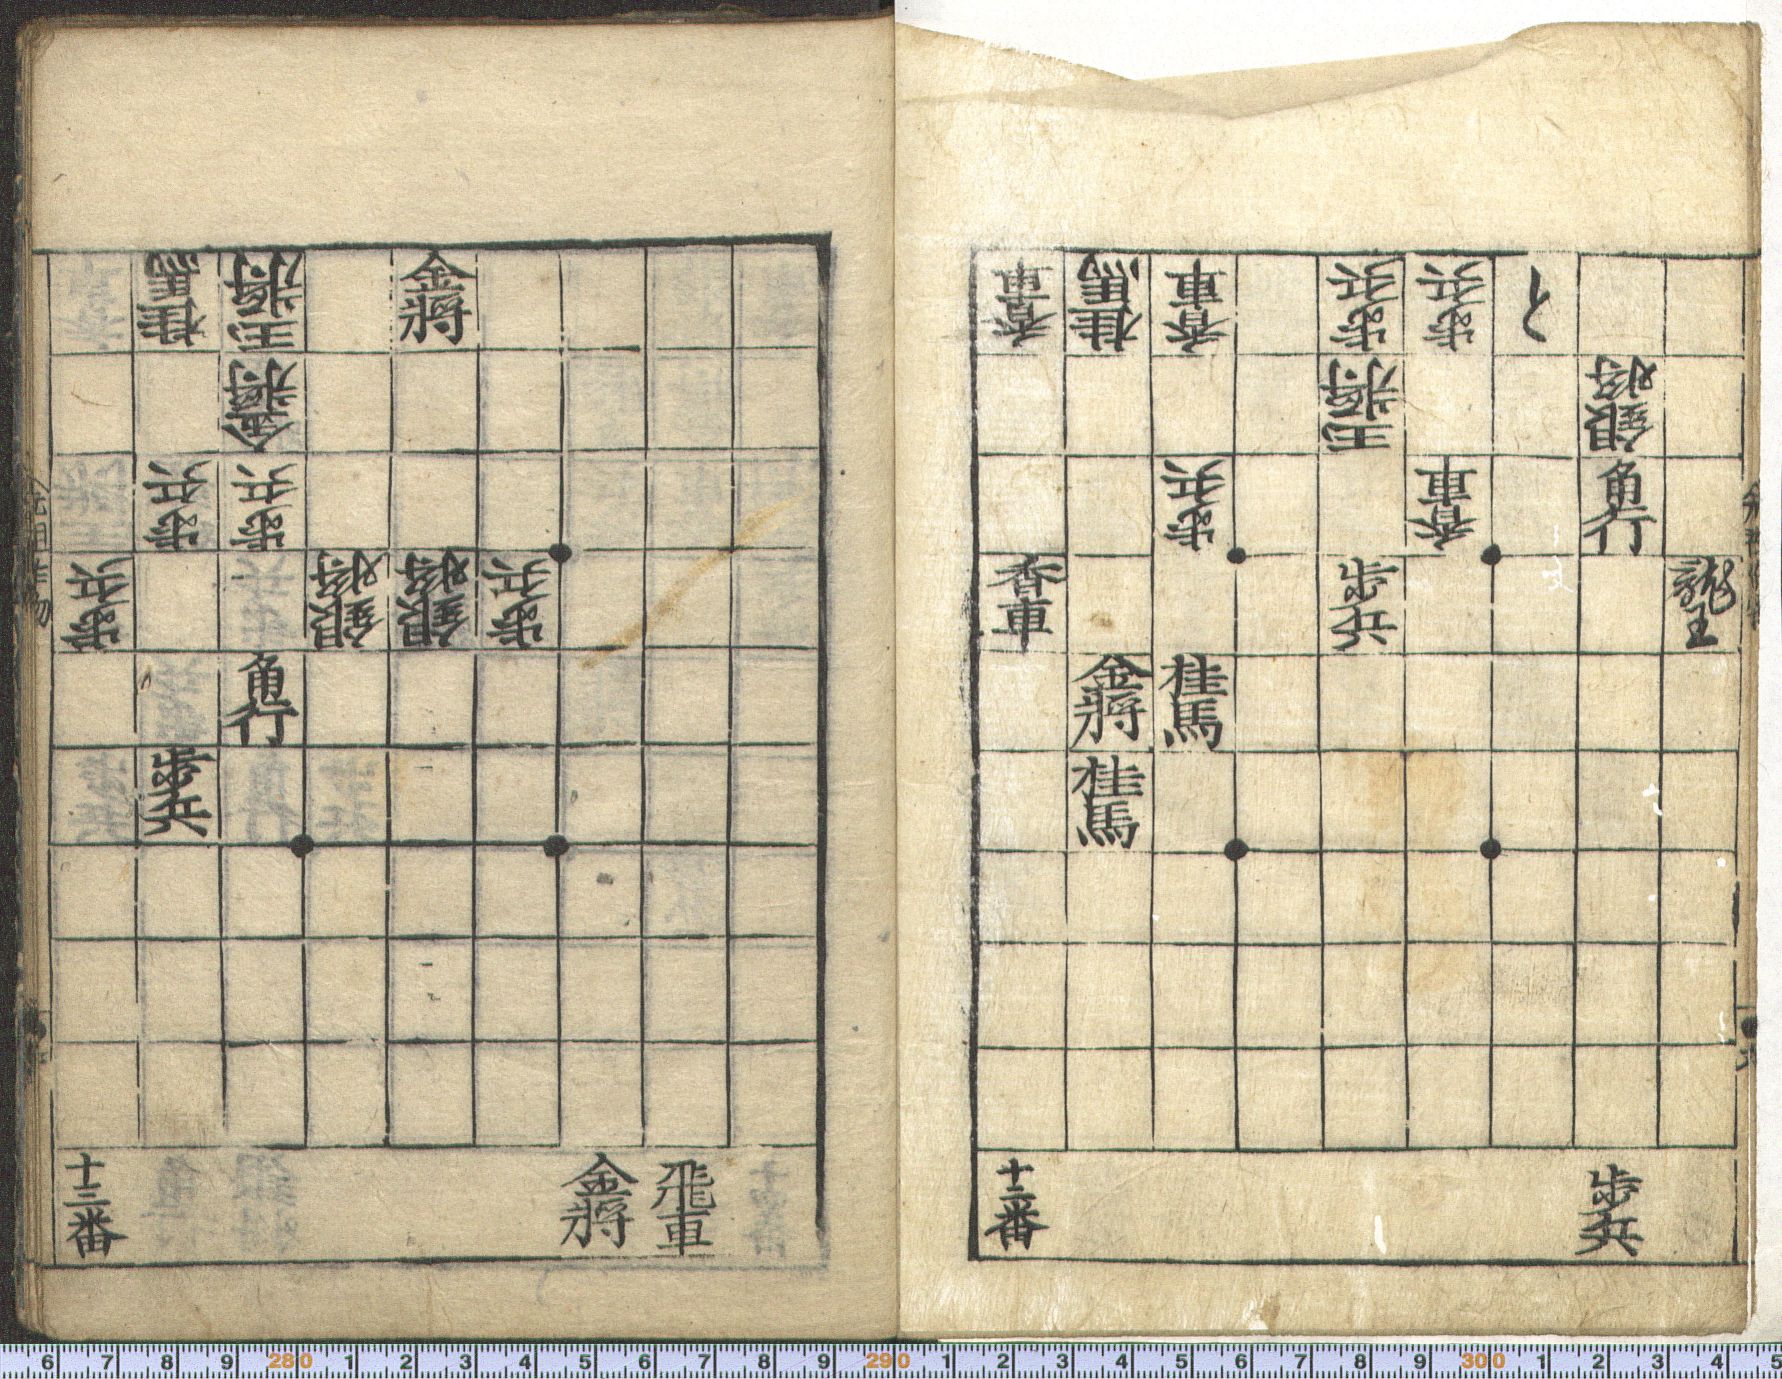 と 歩兵 歩兵 香車 桂馬 香車
銀將 王將
角行 香車 歩兵
龍王 歩兵 香車
桂馬 金將
桂馬
歩兵
十二番
金將 王將 桂馬
金將
歩兵 歩兵
歩兵 銀將 銀將 歩兵
角行
歩兵
飛車 金將
十三番
6 7 8 9 280 1 2 3 4 5 6 7 8 9 290 1 2 3 4 5 6 7 8 9 300 1 2 3 4 5